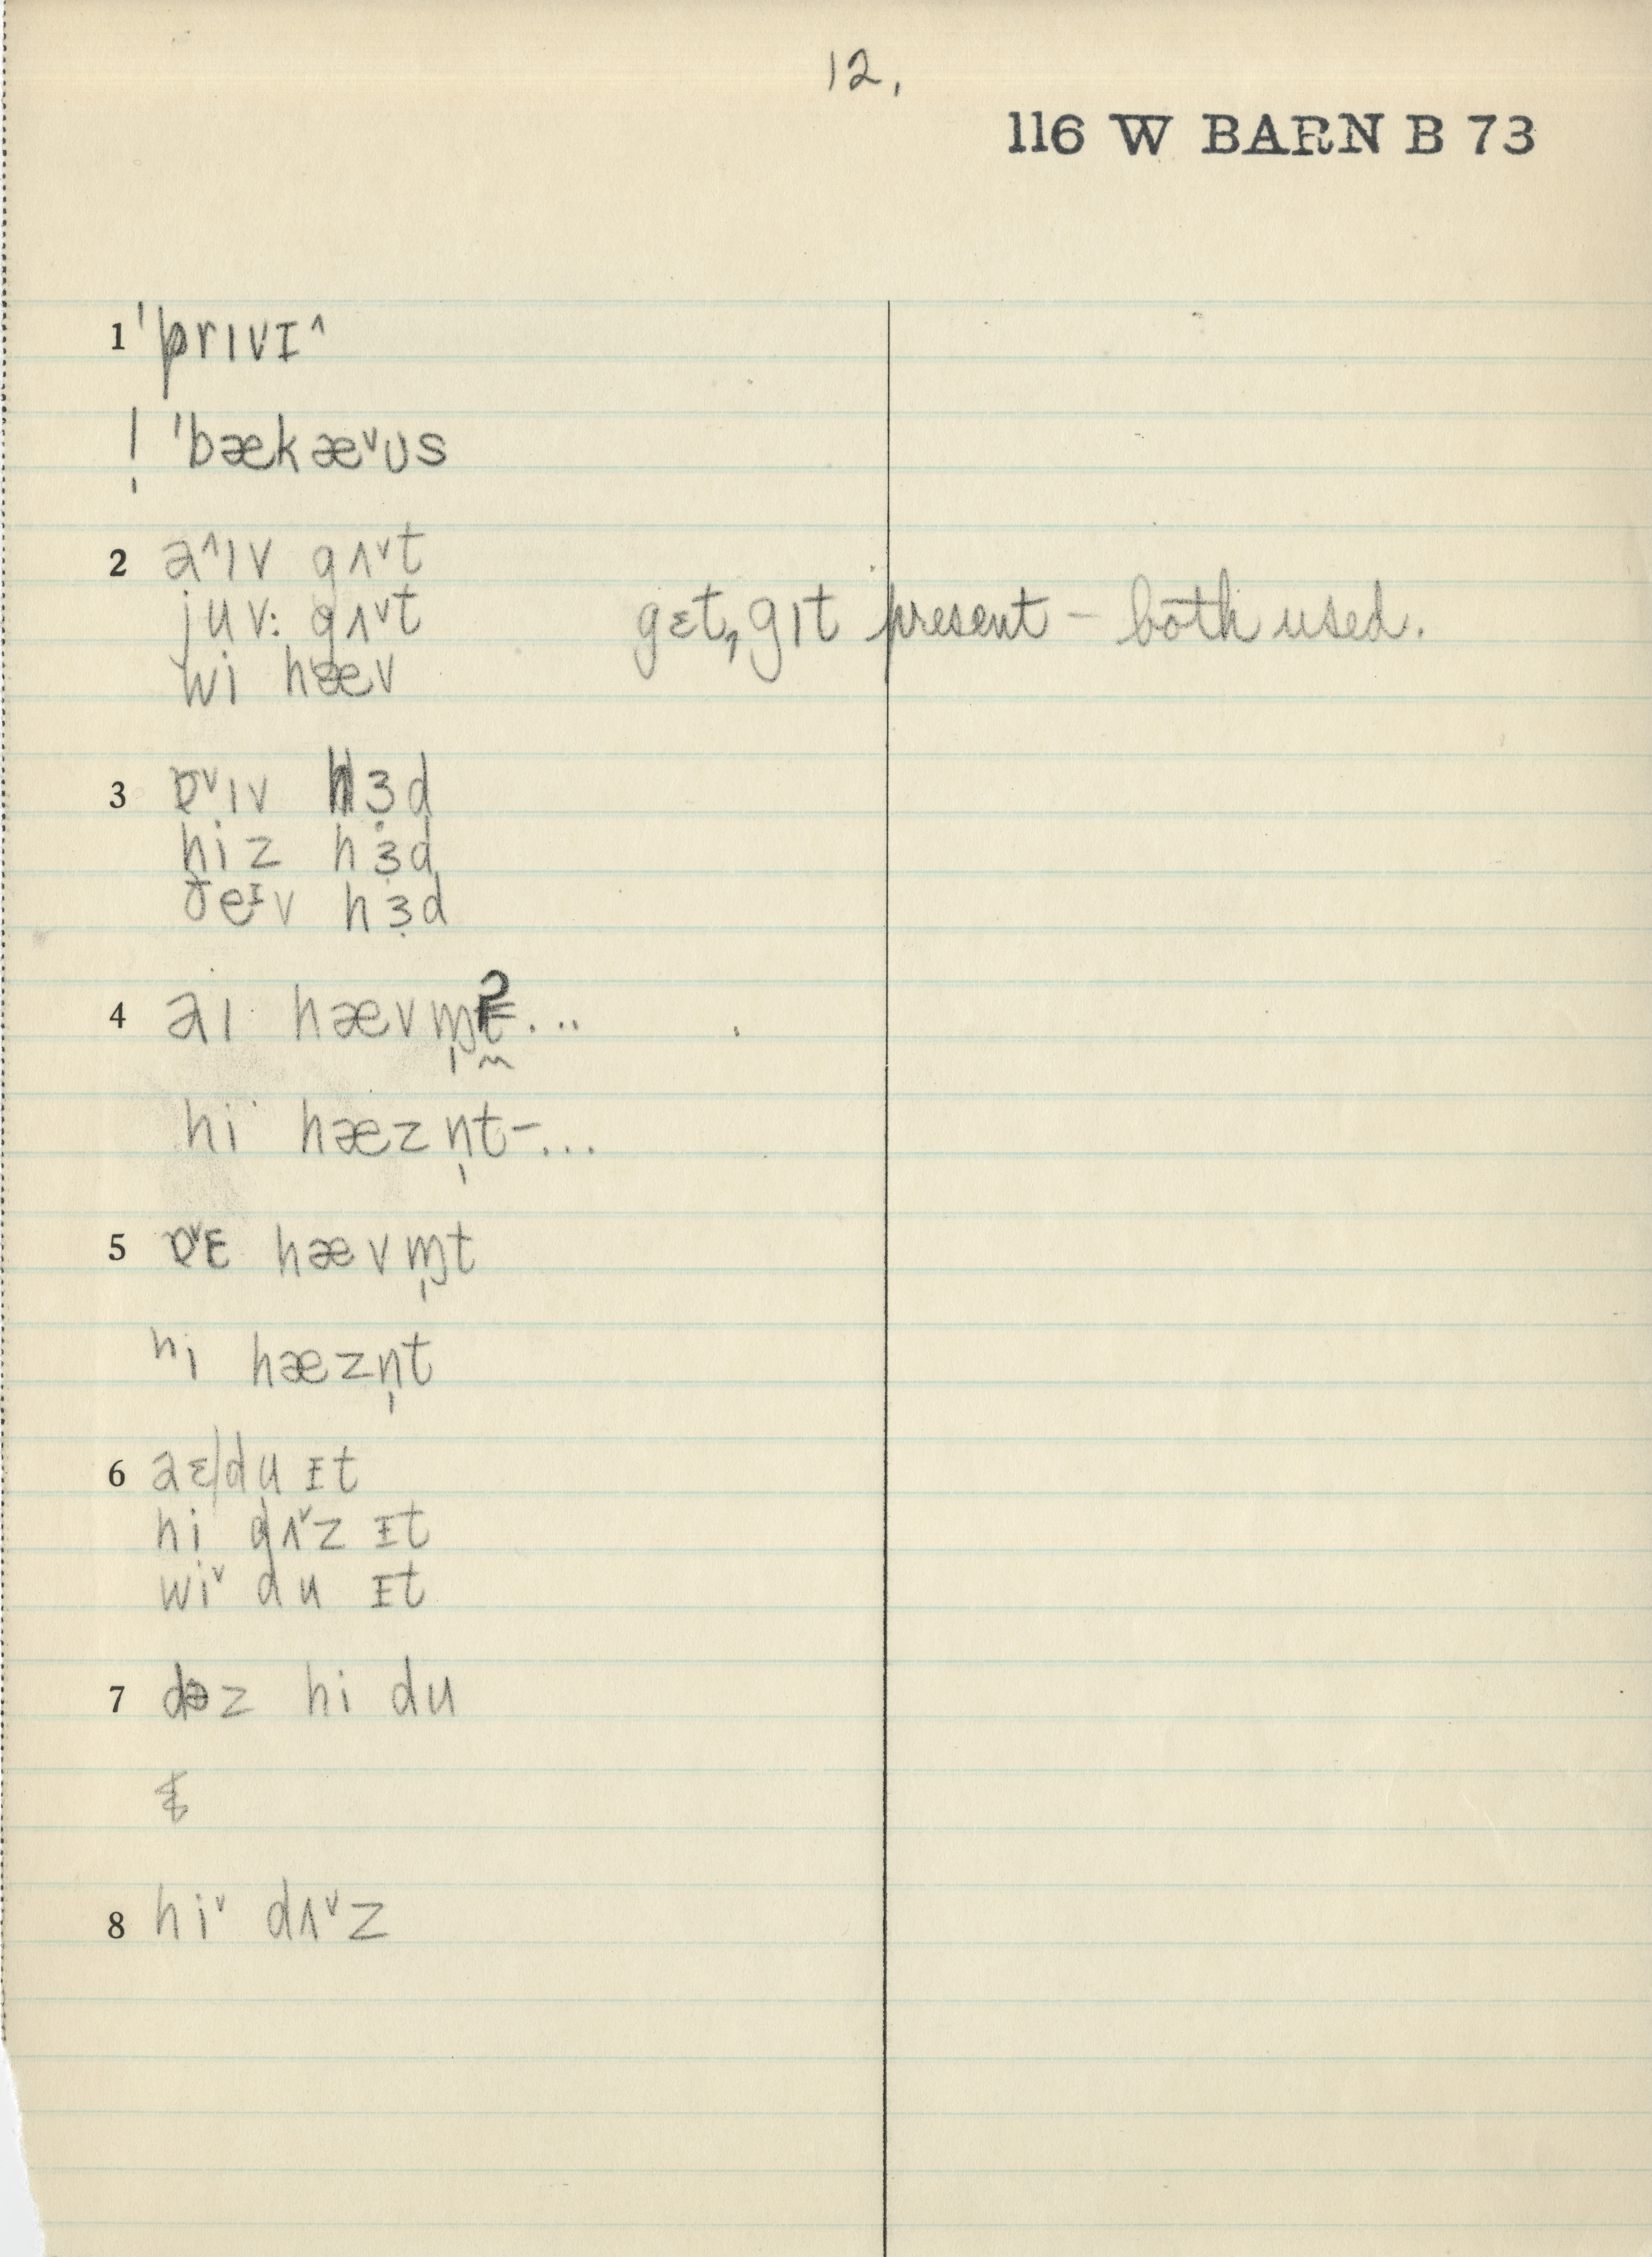 12.
116 W BARN B 73
1 ˈprɪvɪ^
! ˈbækæᵛʊs
2 a^ɪv gʌᵛt
juv: gʌᵛt gɛt, gɪt present – both used.
wi hæv
3 ɒᵛɪv hɜ̣d
hiz hɜ̣d
ðeᴵv hɜ̣d
4 aɪ hævɱ̩t...
hi hæzn̩t–...
5 ɒᵛɛ hævɱ̩t
hi hæzn̩t
6 aɛ/du ɪt
hi dʌᵛz ɪt
wiᵛ du ɪt
7 dəz hi du
8 hiᵛ dʌᵛz